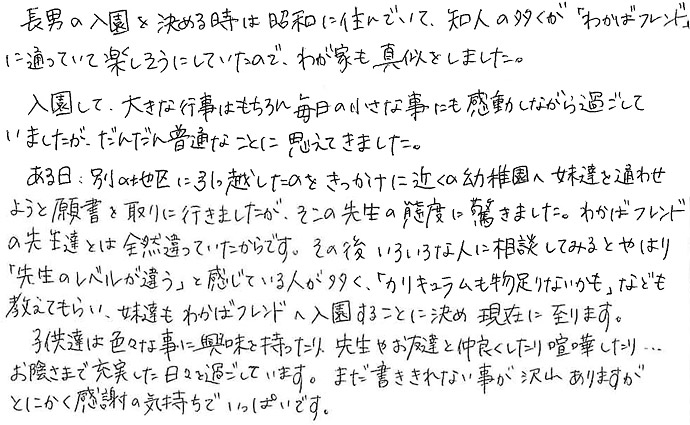 長男の入園を決める時は昭和に住んでいて、知人の多くが「わかばフレンド」
に通っていて楽しそうにしていたので、わが家も真似をしました。
入園して、大きな行事はもちろん毎日の小さな事にも感動しながら過ごして
いましたが、だんだん普通なことに思えてきました。
ある日、別の地区に引っ越したのをきっかけに近くの幼稚園へ妹達を通わせ
ようと願書を取りに行きましたが、そこの先生の態度に驚きました。わかばフレンド
の先生達とは全然違っていたからです。その後いろいろな人に相談してみるとやはり
「先生のレベルが違う」と感じている人が多く、「カリキュラムも物足りないかも」なども
教えてもらい、妹達もわかばフレンドへ入園することに決め現在に至ります。
子供達は色々な事に興味を持ったり、先生やお友達と仲良くしたり喧嘩したり…
お陰さまで充実した日々を過ごしています。まだ書ききれない事が沢山ありますが
とにかく感謝の気持ちでいっぱいです。